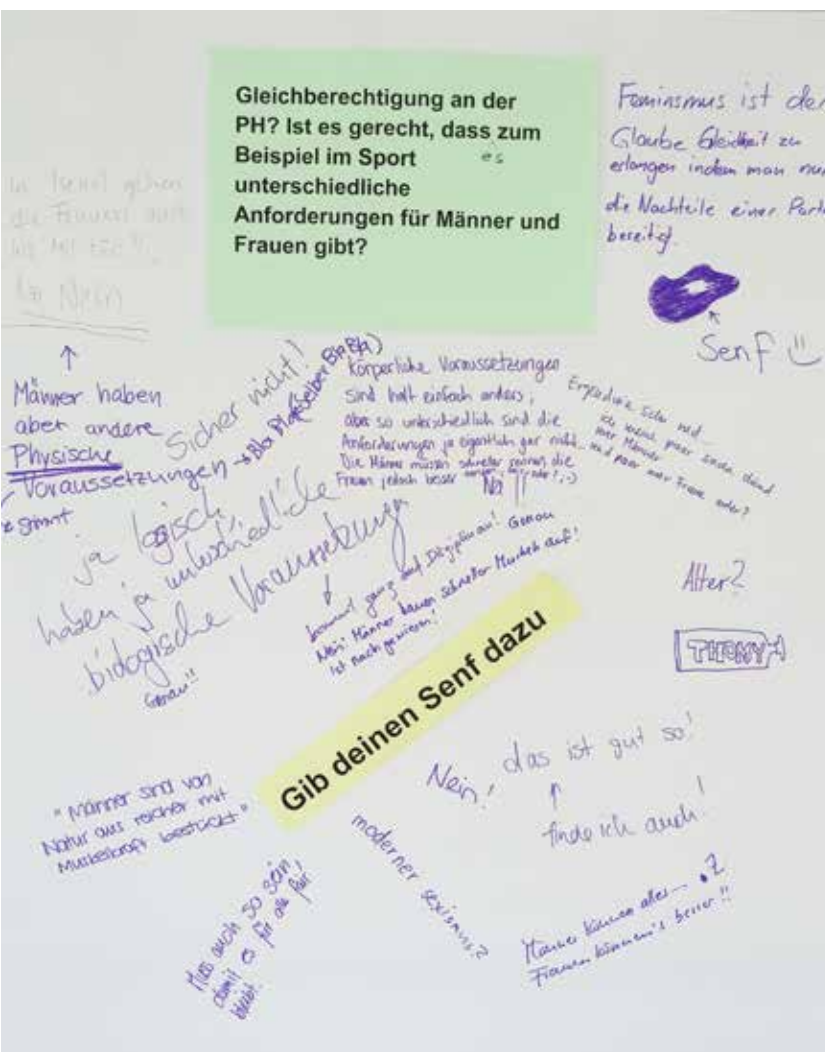 Gleichberechtigung an der
PH? Ist es gerecht, dass zum
Beispiel im Sport es
unterschiedliche
Anforderungen für Männer und
Frauen gibt?
Feminsmus ist der
Glaube Gleichheit zu
erlangen indem man nur
die Nachteile einer Parte
bereitigt.
Senf
In Israel gehen
die Frauen auch
Nein
Männer haben
aber andere
Physische
Voraussetzungen
stimmt
Sicher nicht!
Körperliche Voraussetzungen
sind halt einfach anders,
aber so unterschiedlich sind die
Anforderungen ja eigentlich gar nicht...
Die Männer müssen schneller rennen die
Frauen jedoch besser
ja logisch,
haben ja unterschiedliche
biologische Voraussetzungen
Genau!!
kommt ganz auf Disziplin an! Genau
Nein! Männer bauen schneller Muskeln auf!
Ist nachgewiesen!
Alter?
THOMY
Gib deinen Senf dazu
Nein! das ist gut so!
finde ich auch!
"Männer sind von
Natur aus reicher mit
Muskelkraft bestückt"
moderner sexismus?
Mues auch so sein,
damit es für alle fair
bleibt!
Männer können alles...
Frauen können's besser!!